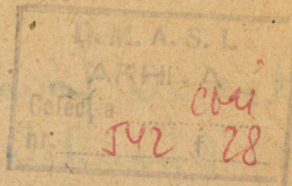 D. M. A. S. I.
ARHIVA
Colecția
nr. 542 f. 28